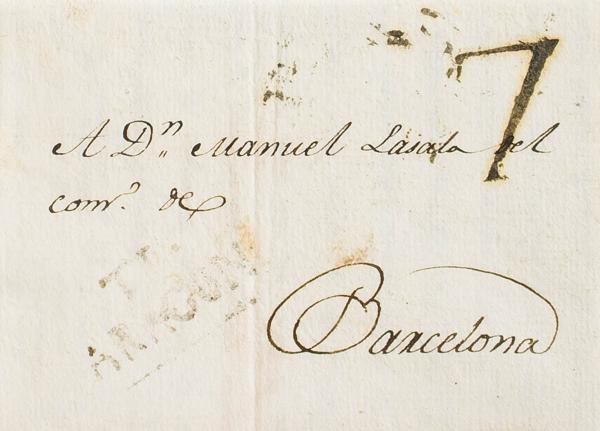 7
A Dn. Manuel Lasala del
comr. de
Barcelona
ARAGON